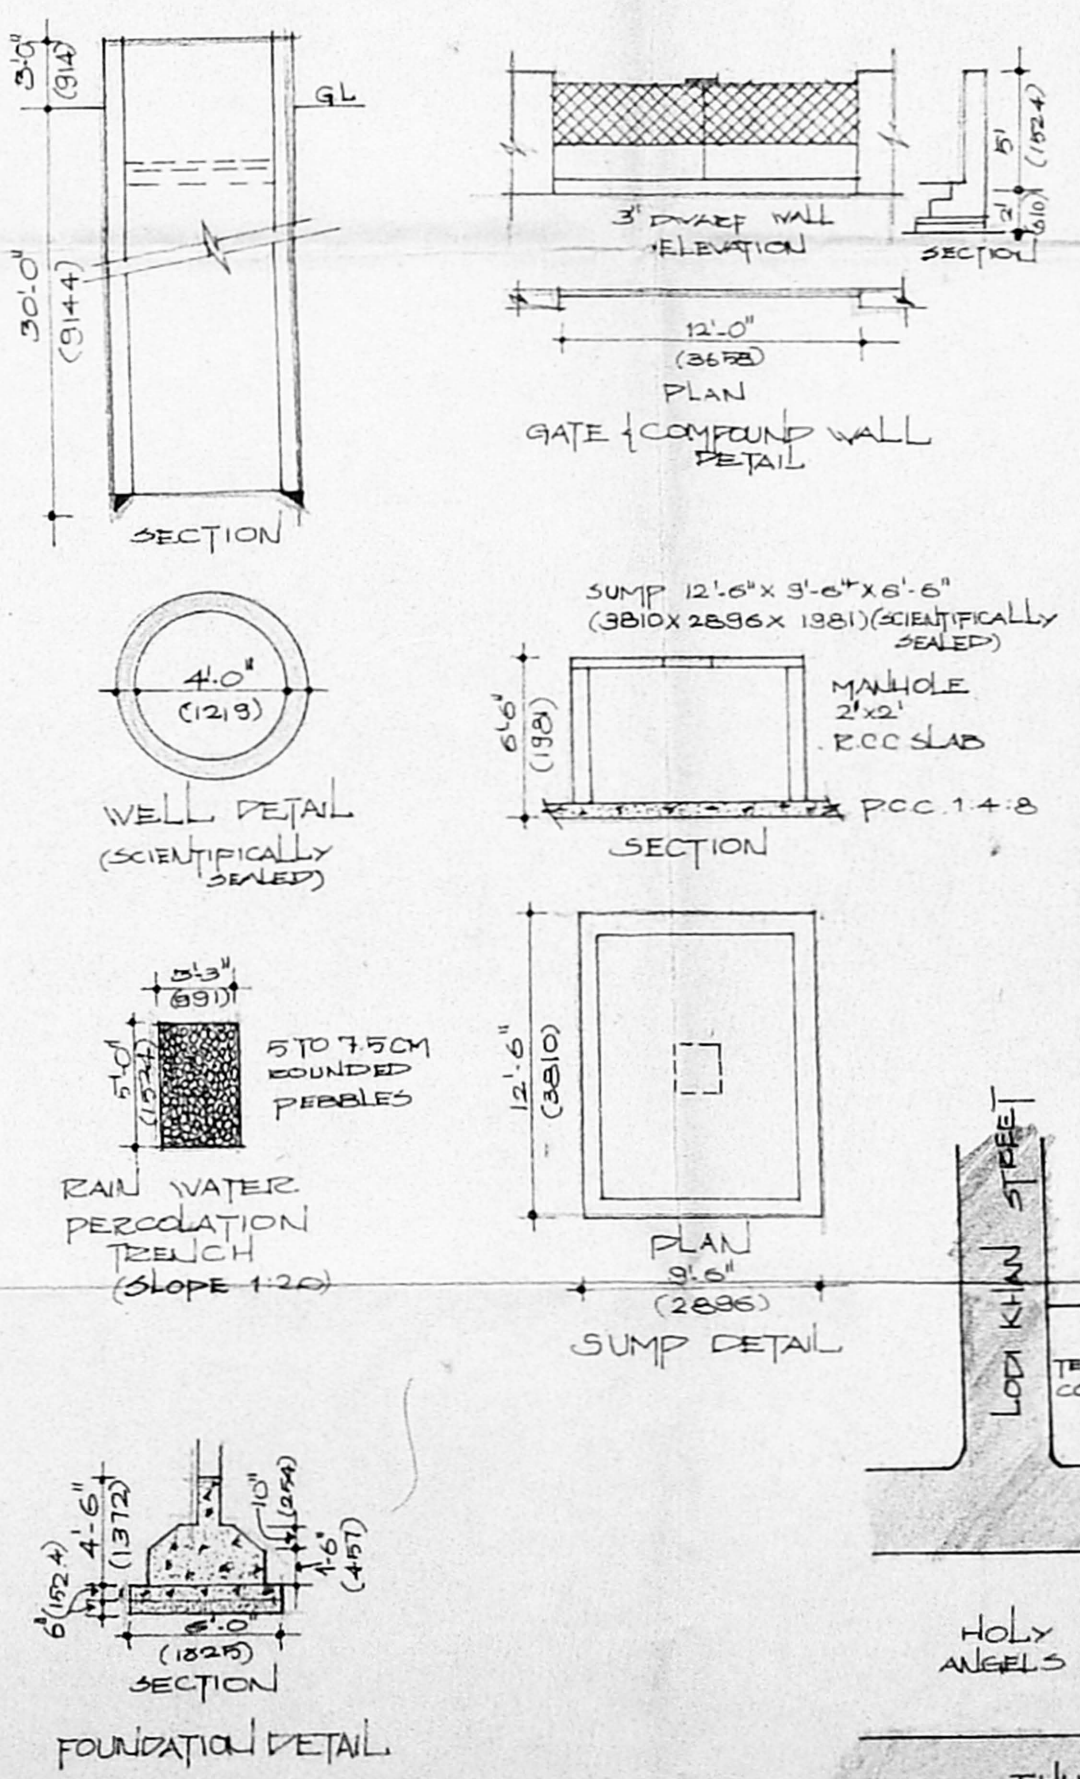 3'-0"
(914)
GL
30'-0"
(9144)
SECTION
4'-0"
(1219)
WELL DETAIL
(SCIENTIFICALLY
SEALED)
3'-3"
(991)
5'-0"
(1524)
5 TO 7.5 CM
ROUNDED
PEBBLES
RAIN WATER
PERCOLATION
TRENCH
(SLOPE 1:20)
4'-6"
(1372)
6"(152.4)
10"
(254)
1'-6"
(457)
6'-0"
(1825)
SECTION
FOUNDATION DETAIL
3" DWARF WALL
ELEVATION
5'
(1524)
2'
(610)
SECTION
12'-0"
(3658)
PLAN
GATE & COMPOUND WALL
DETAIL
SUMP 12'-6" X 9'-6" X 6'-6"
(3810 X 2896 X 1981)(SCIENTIFICALLY
SEALED)
6'-6"
(1981)
MANHOLE
2' X 2'
R.C.C SLAB
P.C.C. 1:4:8
SECTION
12'-6"
(3810)
PLAN
9'-6"
(2896)
SUMP DETAIL
LODI KHAN STREET
TE
CO
HOLY
ANGELS